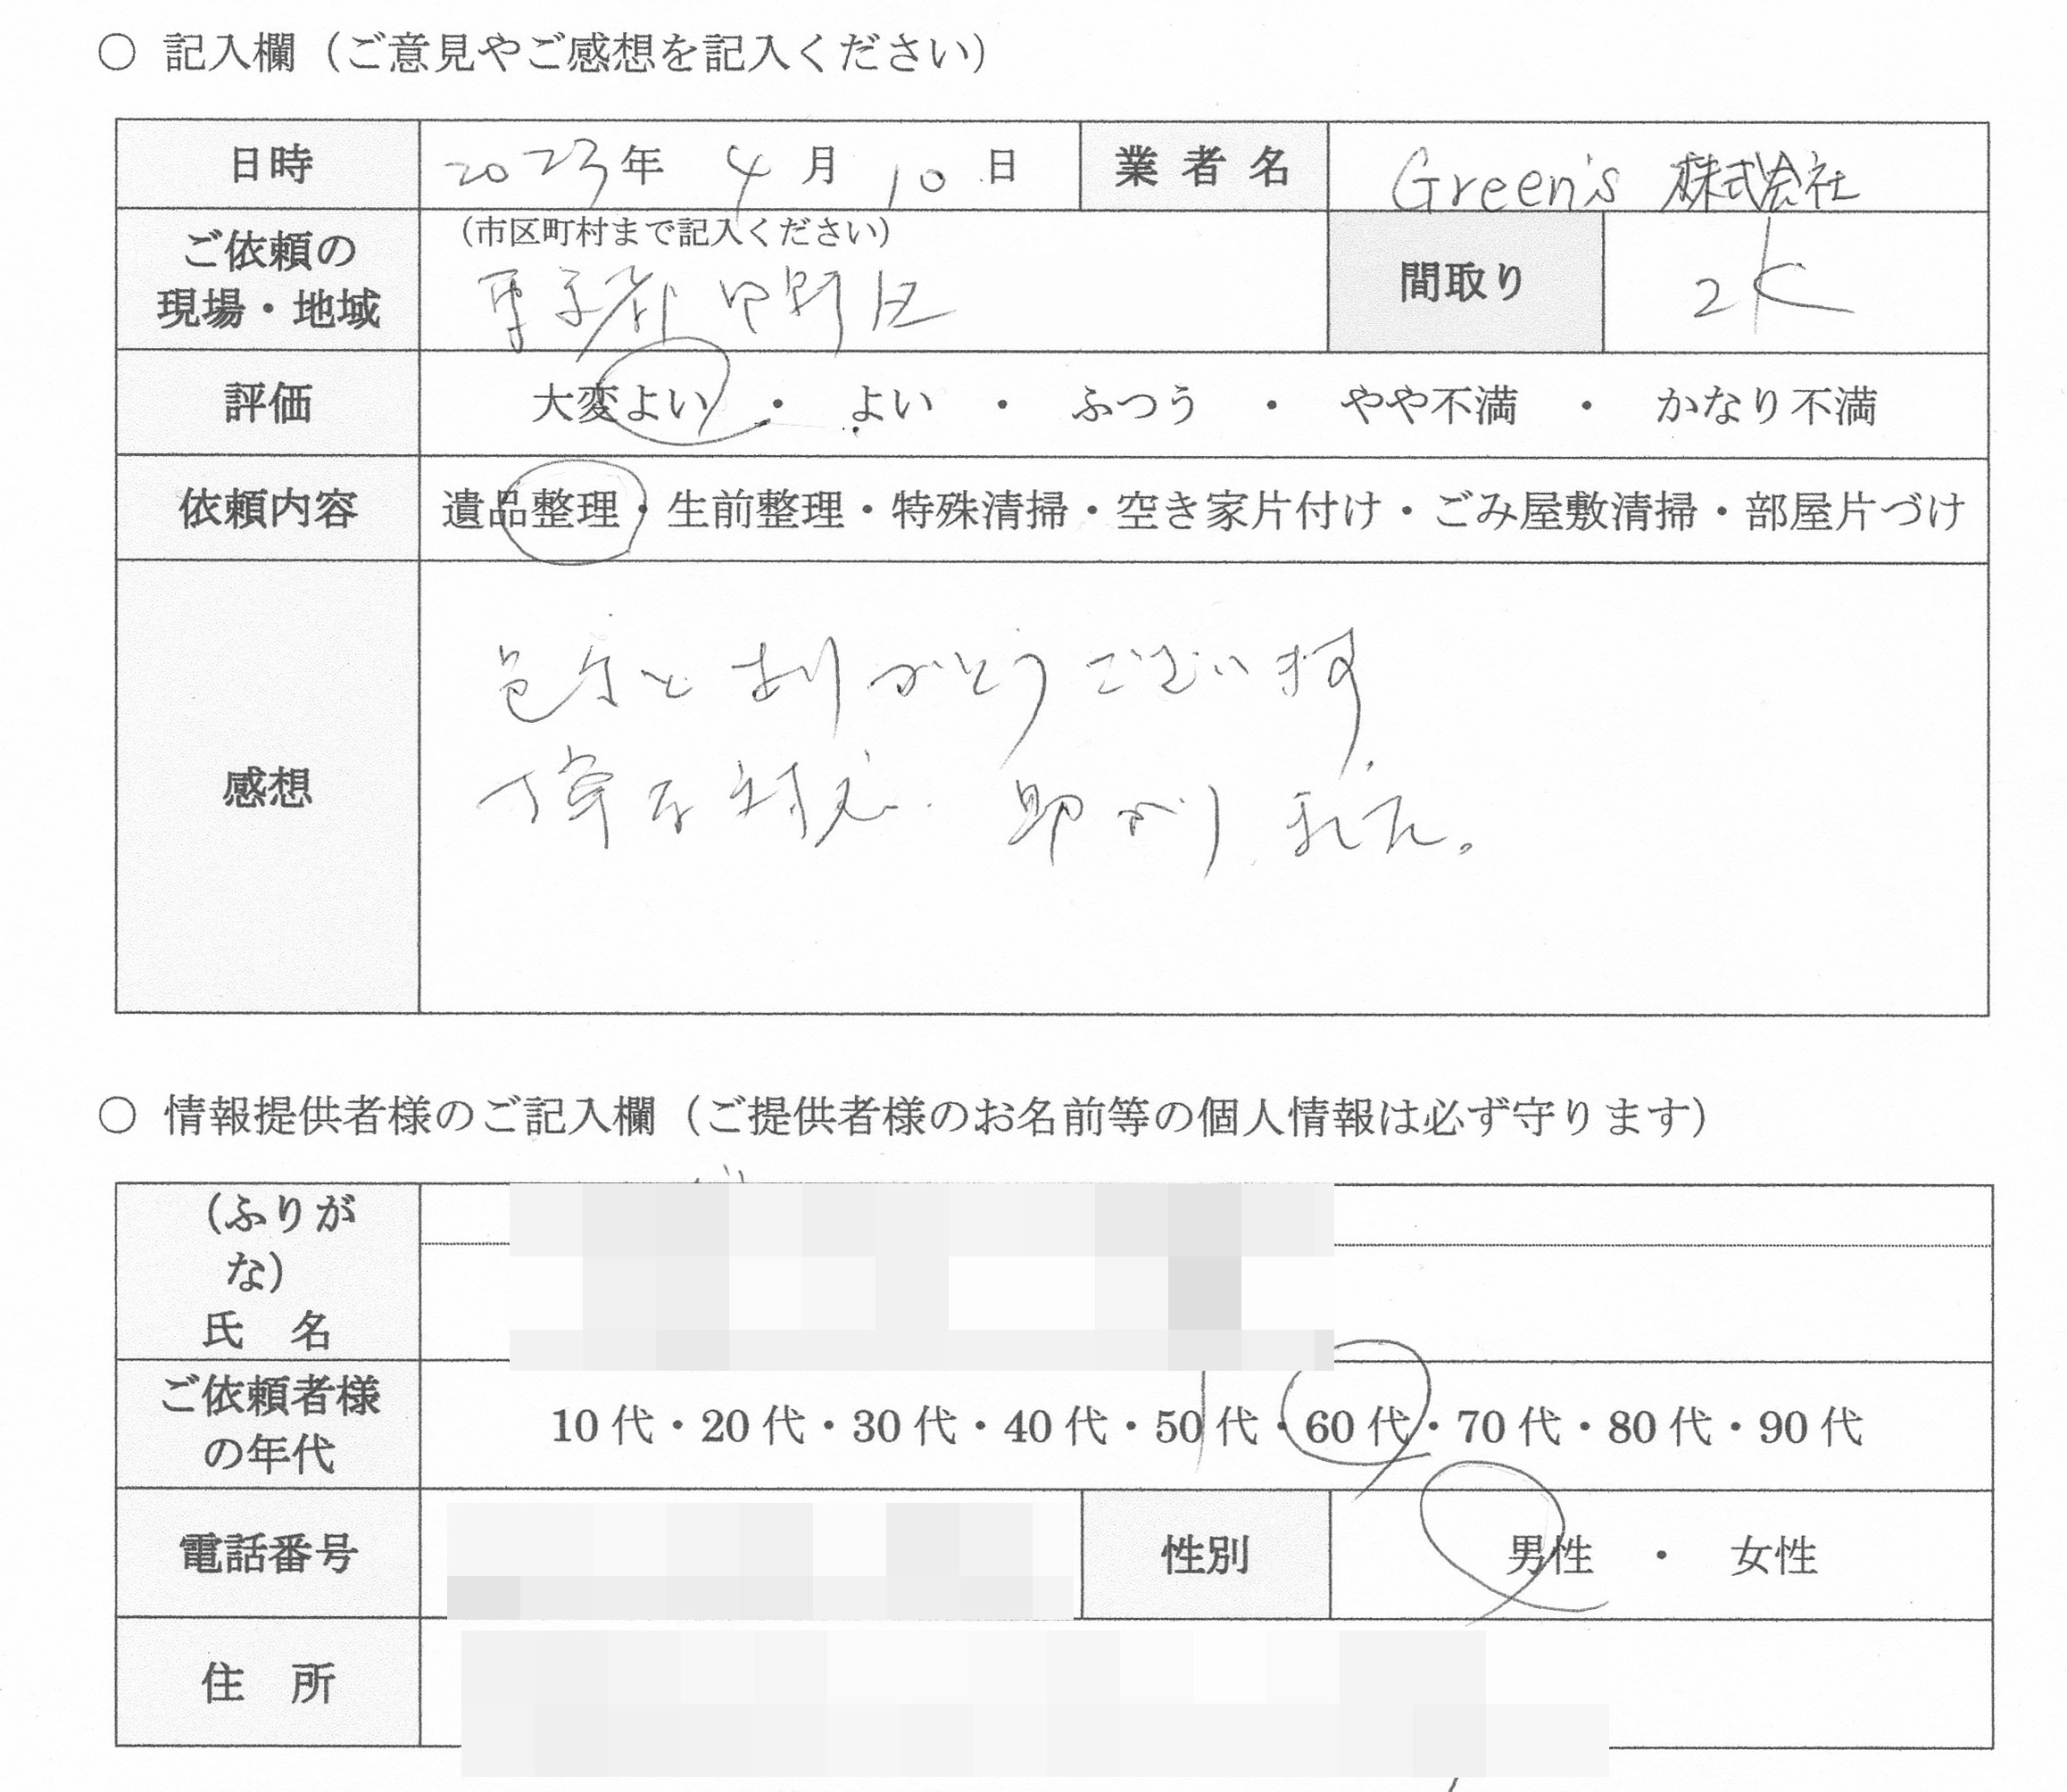 ○ 記入欄（ご意見やご感想を記入ください）
日時 2023年 4月 10日 業者名 Green's 株式会社
ご依頼の
現場・地域
（市区町村まで記入ください）
東京都 中野区
間取り 2K
評価 大変よい ・ よい ・ ふつう ・ やや不満 ・ かなり不満
依頼内容 遺品整理・生前整理・特殊清掃・空き家片付け・ごみ屋敷清掃・部屋片づけ
感想
色々とありがとうございます
丁寧な対応 助かりました。
○ 情報提供者様のご記入欄（ご提供者様のお名前等の個人情報は必ず守ります）
（ふりが
な）
氏 名
ご依頼者様
の年代
10代・20代・30代・40代・50代・60代・70代・80代・90代
電話番号
性別 男性 ・ 女性
住 所